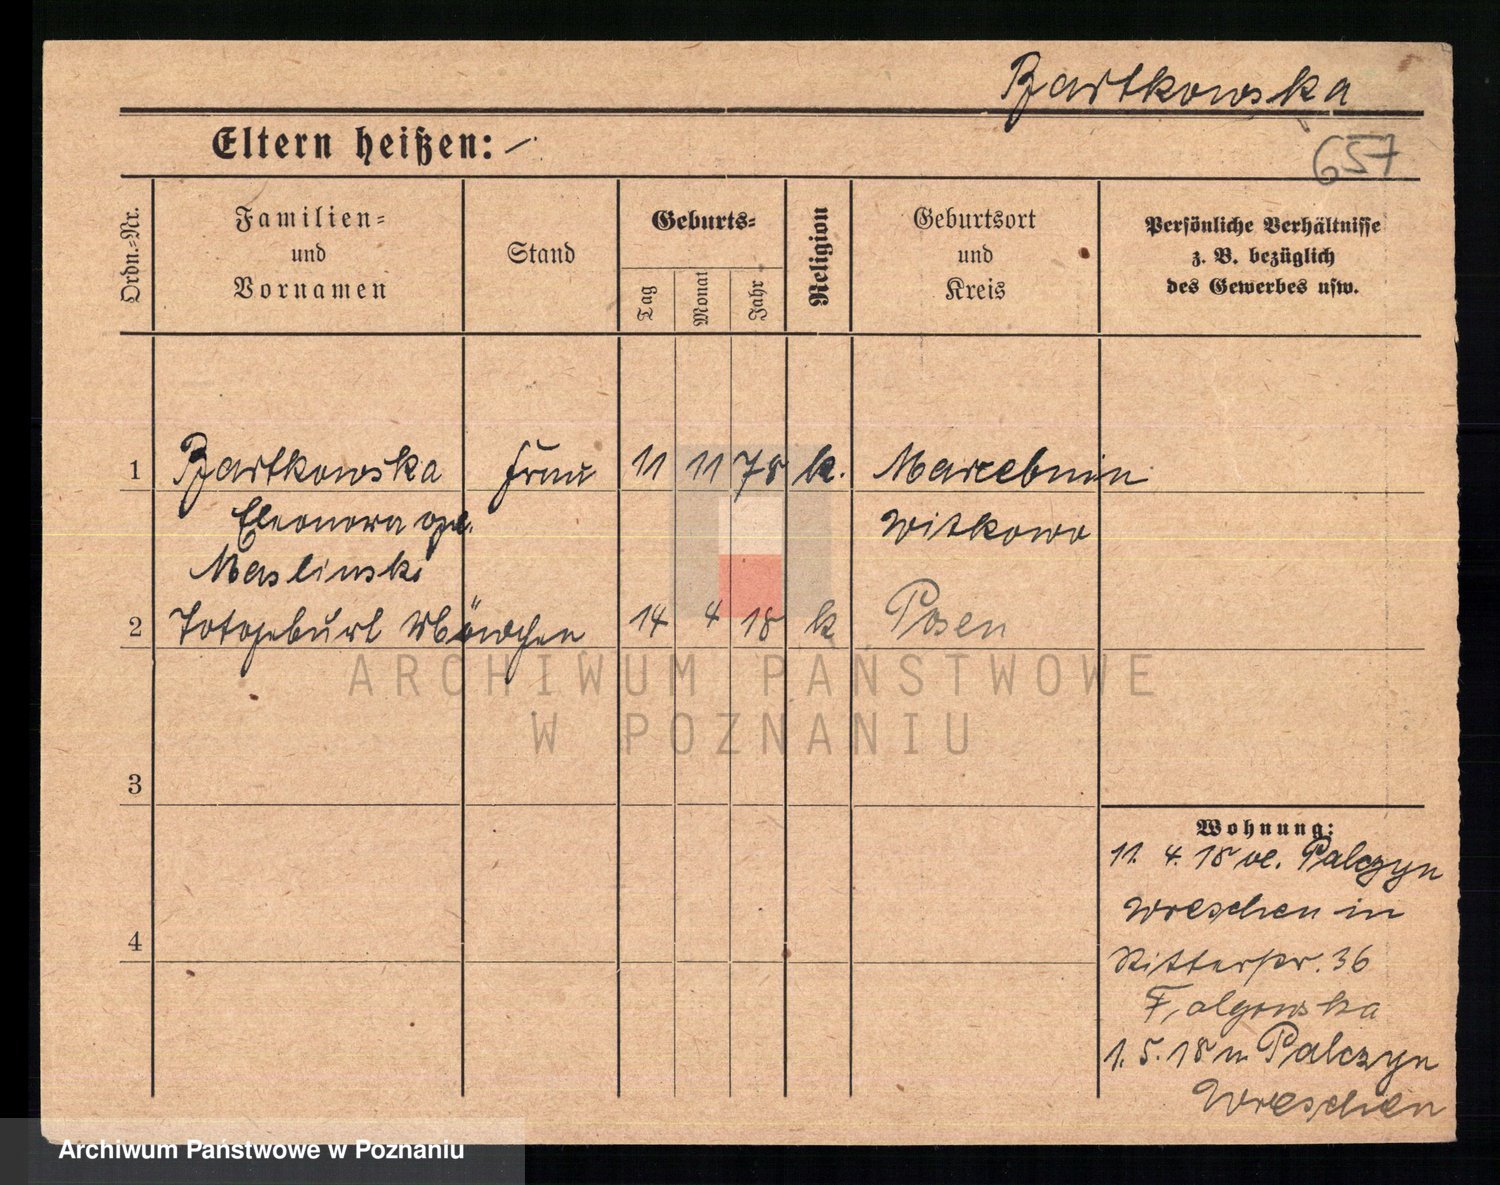 Bartkowska
Eltern heißen: —
657
Ordn.=Nr.
Familien=
und
Vornamen
Stand
Geburts=
Tag
Monat
Jahr
Religion
Geburtsort
und
Kreis
Persönliche Verhältnisse
z. B. bezüglich
des Gewerbes usw.
1 Bartkowska Frau 11 11 78 k. Marcebnin
Eleonora geb. Witkowo
Maslinski
2 Totgeburt Mädchen 14 4 18 k Posen
ARCHIWUM PAŃSTWOWE
W POZNANIU
3
4
Wohnung:
11. 4. 18 v. Palczyn
Wreschen in
Ritterstr. 36
1. 5. 18 n Palczyn
Wreschen
Archiwum Państwowe w Poznaniu